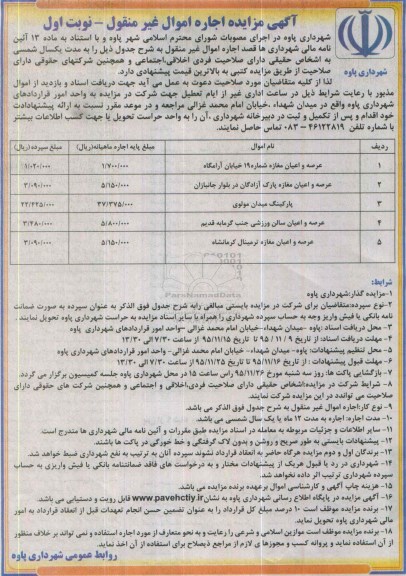 آگهی مزایده اجاره اموال غیر منقول - نوبت اول
شهرداری پاوه
شهرداری پاوه در اجرای مصوبات شورای محترم اسلامی شهر پاوه و با استناد به ماده ۱۳ آئین
نامه مالی شهرداری ها قصد اجاره اموال غیر منقول به شرح جدول ذیل را به مدت یکسال شمسی
به اشخاص حقیقی دارای صلاحیت فردی اخلاقی،اجتماعی و همچنین شرکتهای حقوقی دارای
صلاحیت از طریق مزایده کتبی به بالاترین قیمت پیشنهادی دارد.
لذا از کلیه متقاضیان مورد صلاحیت دعوت به عمل می آید جهت دریافت اسناد و بازدید از اموال
مذبور با رعایت شرایط ذیل در ساعت اداری غیر از ایام تعطیل جهت شرکت در مزایده به واحد امور قراردادهای
شهرداری پاوه واقع در میدان شهداء ،خیابان امام محمد غزالی مراجعه و در موعد مقرر نسبت به ارائه پیشنهادات
خود اقدام و پس از تکمیل و ثبت در دبیرخانه شهرداری ،آن را به واحد حراست تحویل یا جهت کسب اطلاعات بیشتر
با شماره تلفن ۴۶۱۲۲۸۱۹ - ۰۸۳ تماس حاصل نمایند.
ردیف نام اموال مبلغ پایه اجاره ماهیانه(ریال) مبلغ سپرده(ریال)
۱ عرصه و اعیان مغازه شماره۱۹ خیابان آرامگاه ۱/۷۰۰/۰۰۰ ۱/۰۲۰/۰۰۰
۲ عرصه و اعیان مغازه پارک آزادگان در بلوار جانبازان ۵/۱۵۰/۰۰۰ ۳/۰۹۰/۰۰۰
۳ پارکینگ میدان مولوی ۳۷/۳۷۵/۰۰۰ ۲۲/۴۲۵/۰۰۰
۴ عرصه و اعیان سالن ورزشی جنب گرمابه قدیم ۵/۸۰۰/۰۰۰ ۳/۴۸۰/۰۰۰
۵ عرصه و اعیان مغازه ترمینال کرمانشاه ۵/۱۵۰/۰۰۰ ۳/۰۹۰/۰۰۰
ParsNamadData
شرایط:
۱-مزایده گذار:شهرداری پاوه
۲-نوع سپرده:متقاضیان برای شرکت در مزایده بایستی مبالغی رابه شرح جدول فوق الذکر به عنوان سپرده به صورت ضمانت
نامه بانکی یا فیش واریز وجه به حساب سپرده شهرداری را همراه با سایر اسناد مزایده به حراست شهرداری پاوه تحویل نمایند .
۳- محل دریافت اسناد :پاوه -میدان شهداء-خیابان امام محمد غزالی -واحد امور قراردادهای شهرداری پاوه
۴- مهلت دریافت اسناد: از تاریخ ۹ / ۱۱ / ۹۵ تا تاریخ ۹۵/۱۱/۱۵ از ساعت ۷/۳۰ الی ۱۳/۳۰
۵- محل تسلیم پیشنهادات: پاوه- میدان شهداء- خیابان امام محمد غزالی- واحد امور قراردادهای شهرداری پاوه
۶- مهلت قبول پیشنهادات : از تاریخ ۹۵/۱۱/۱۶ تا تاریخ ۹۵/۱۱/۲۵ از ساعت ۷/۳۰ الی ۱۳/۳۰
۷- بازگشایی پاکت ها: روز سه شنبه مورخ ۹۵/۱۱/۲۶ راس ساعت ۱۵ در محل شهرداری پاوه جلسه کمیسیون برگزار می گردد.
۸- شرایط شرکت در مزایده:اشخاص حقیقی دارای صلاحیت فردی،اخلاقی و اجتماعی و همچنین شرکت های حقوقی دارای
صلاحیت می توانند در این مزایده شرکت نمایند.
۹- نوع کار:اجاره اموال غیر منقول به شرح جدول فوق الذکر می باشد.
۱۰- مدت اجاره: اجاره به مدت ۱۲ ماه یا یک سال شمسی می باشد.
۱۱- سایر اطلاعات و جزئیات مربوطه به معامله در اسناد مزایده طبق مقررات و آئین نامه مالی شهرداری ها مندرج است.
۱۲- پیشنهادات بایستی به طور صریح و روشن و بدون لاک گرفتگی و خط خوردگی در پاکت ها باشند.
۱۳- برندگان اول و دوم مزایده هرگاه حاضر به انعقاد قرارداد نشوند سپرده آنان به ترتیب به نفع شهرداری ضبط خواهد شد.
۱۴- شهرداری در رد یا قبول هریک از پیشنهادات مختار و به درخواست های فاقد ضمانتنامه بانکی یا فیش واریزی به حساب
سپرده شهرداری ترتیب اثر داده نخواهد شد.
۱۵- هزینه چاپ آگهی و کارشناسی اموال برعهده برنده مزایده می باشد.
۱۶- آگهی مزایده در پایگاه اطلاع رسانی شهرداری پاوه به نشانیwww.pavehctiy.ir قابل رویت و دستیابی می باشد.
۱۷- برنده مزایده موظف است ۱۰ درصد مبلغ کل قرارداد را به عنوان تضمین حسن انجام تعهدات قبل از انعقاد قرارداد به امور
مالی شهرداری پاوه تحویل نماید.
۱۸- برنده مزایده موظف است موازین اسلامی و شرعی را رعایت و به نحو متعارف از مورد اجاره استفاده و نمی تواند بر خلاف منظور
از آن استفاده نماید و پروانه کسب و مجوزها ی لازم از مراجع ذیصلاح برای استفاده از آن اخذ نماید.
روابط عمومی شهرداری پاوه